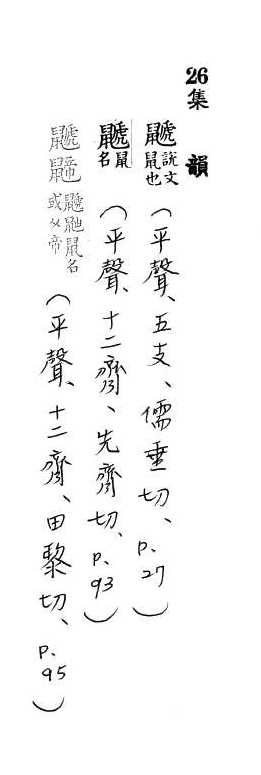 26集韻
鼶説文鼠也（平聲、五支、儒垂切、p.27）
鼶鼠名（平聲、十二齊、先齊切、p.93）
鼶鼶鼠名或从帝（平聲、十二齊、田黎切、p.95）